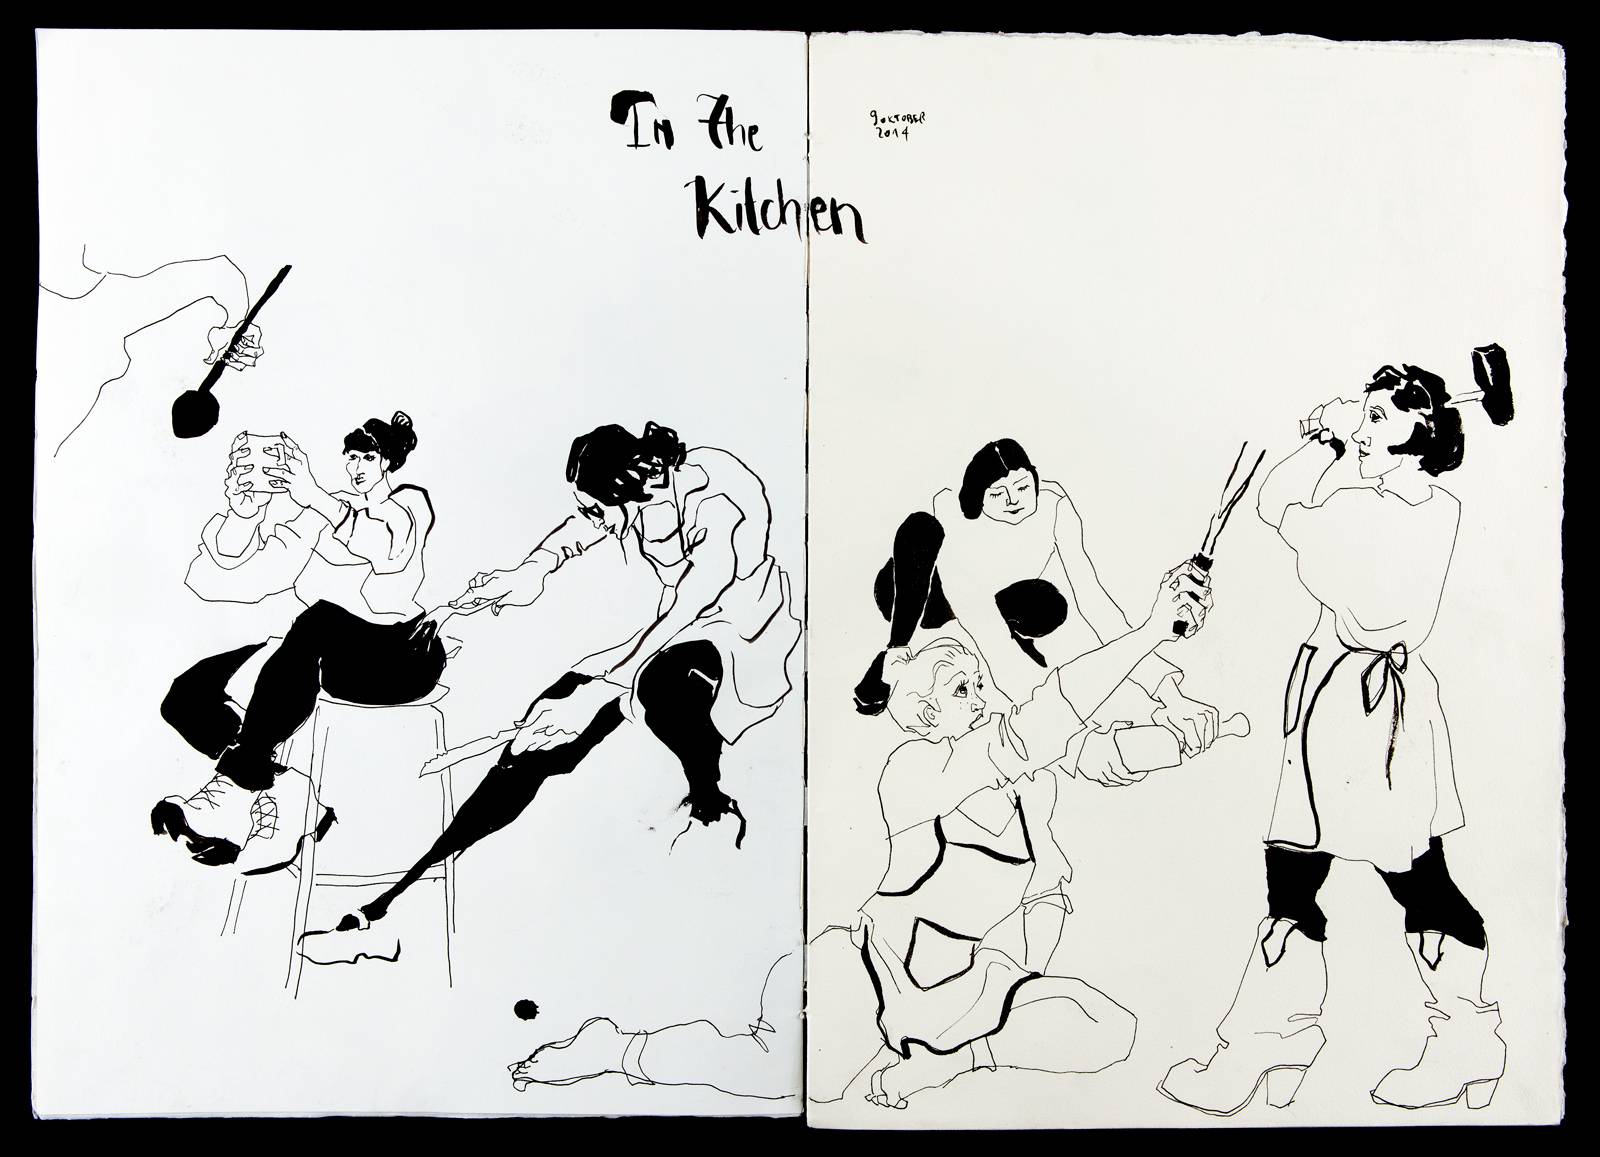 In The
Kitchen
9 OKTOBER
2014